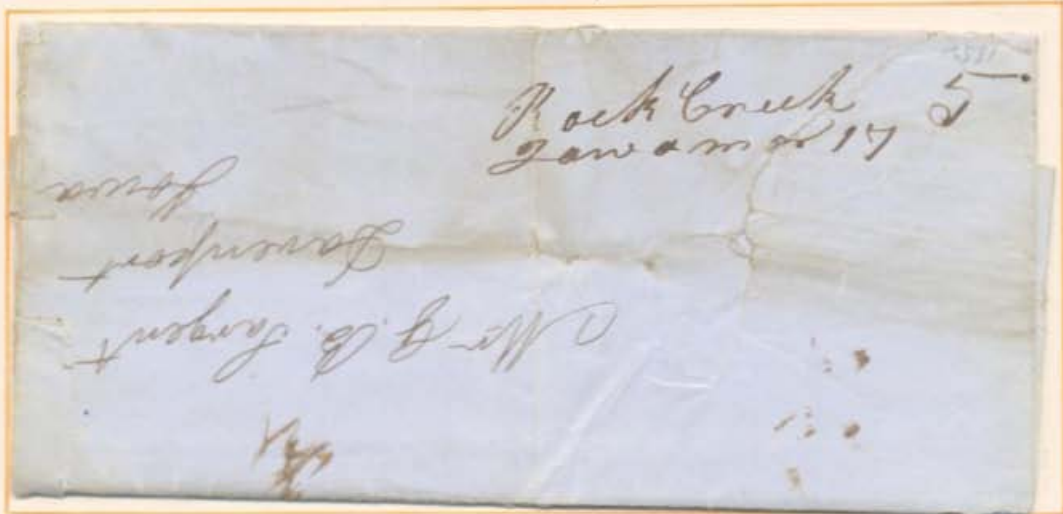 Rock Creek 5
Iowa mar 17
Mr G. B. Sargent
Davenport
Iowa